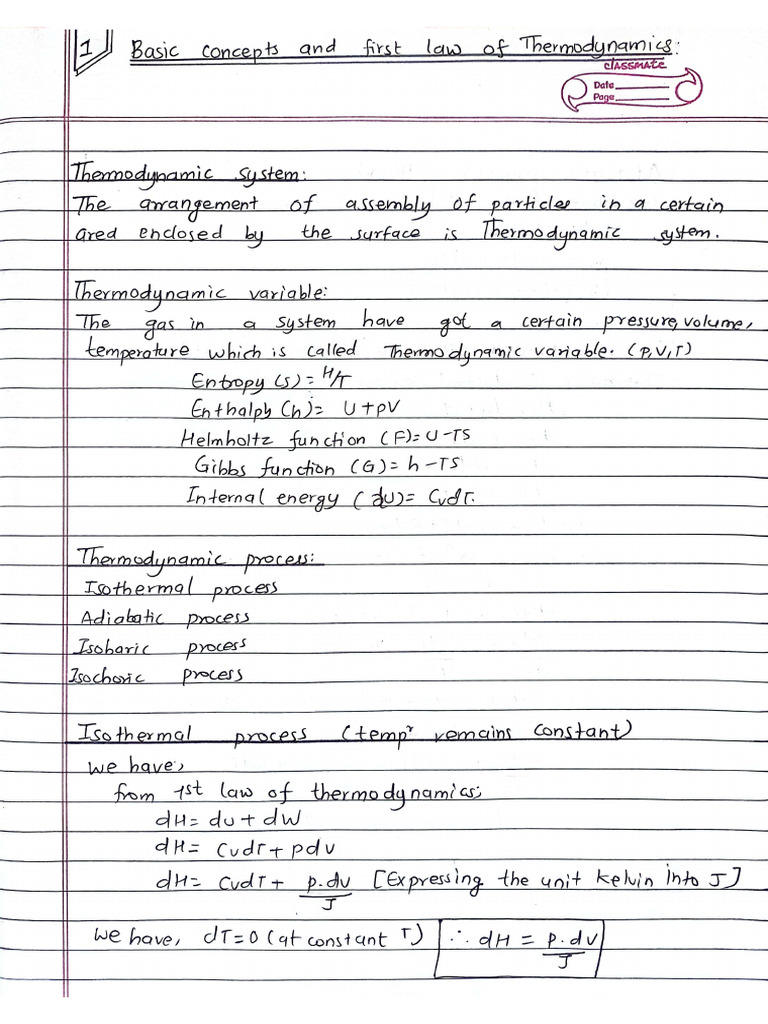 1 Basic concepts and first law of Thermodynamics:
classmate
Date
Page
Thermodynamic system:
The arrangement of assembly of particles in a certain
area enclosed by the surface is Thermodynamic system.
Thermodynamic variable:
The gas in a system have got a certain pressure, volume,
temperature which is called Thermodynamic variable. (P,V,T)
Entropy (s) = H/T
Enthalpy (h) = U+PV
Helmholtz function (F) = U-TS
Gibbs function (G) = h-TS
Internal energy (dU) = CvdT.
Thermodynamic process:
Isothermal process
Adiabatic process
Isobaric process
Isochoric process
Isothermal process (tempr remains constant)
We have,
from 1st law of thermodynamics;
dH = du + dW
dH = CvdT + pdv
dH = CvdT + p.dv/J [Expressing the unit kelvin into J]
We have, dT=0 (at constant T) ∴ dH = p.dv/J